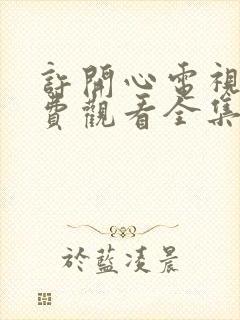 許開心電視
費觀看全集
於藍凌晨